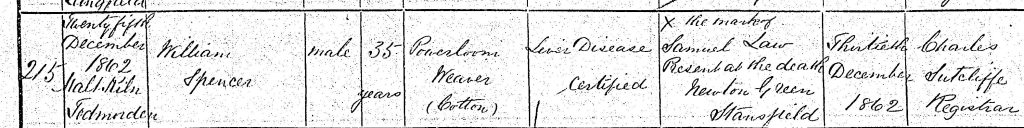 Langfield
215
Twenty fifth
December
1862
Salt Kiln
Todmorden
William
Spencer
male
35
years
Powerloom
Weaver
(Cotton)
Liver Disease
Certified
X the mark of
Samuel Law
Present at the death
Newton Green
Stansfield
Thirtieth
December
1862
Charles
Sutcliffe
Registrar